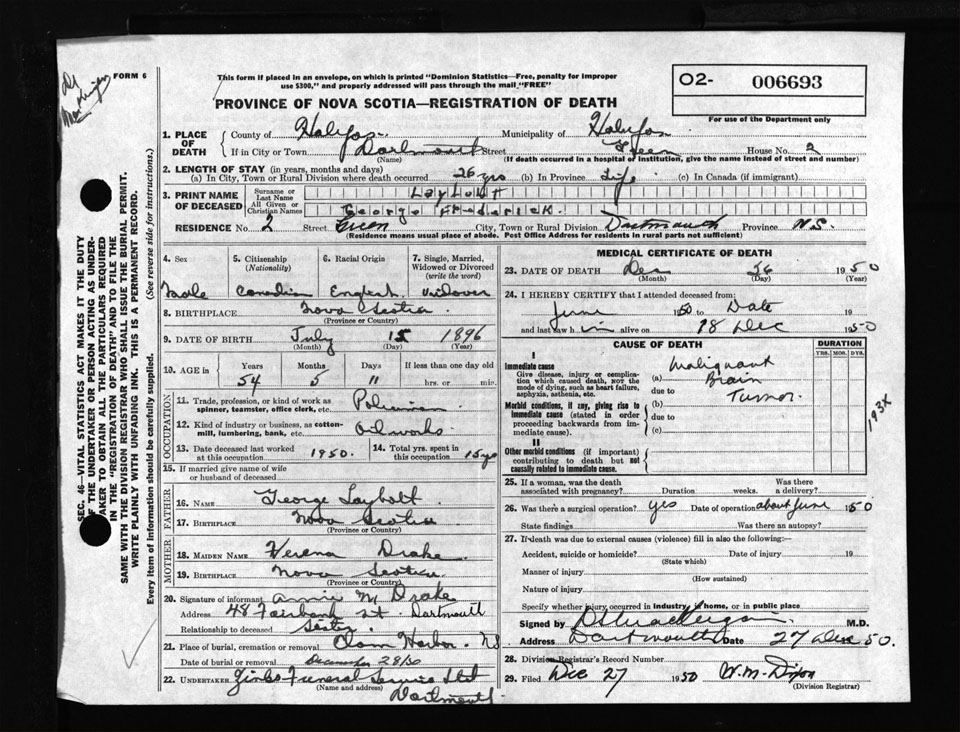 Dr
FORM 6
This form if placed in an envelope, on which is printed "Dominion Statistics—Free, penalty for improper
use $300," and properly addressed will pass through the mail "FREE"
PROVINCE OF NOVA SCOTIA—REGISTRATION OF DEATH
O2- 006693
For use of the Department only
SEC. 46—VITAL STATISTICS ACT MAKES IT THE DUTY
OF THE UNDERTAKER OR PERSON ACTING AS UNDER-
TAKER TO OBTAIN ALL THE PARTICULARS REQUIRED
IN THE "REGISTRATION OF DEATH" AND TO FILE THE
SAME WITH THE DIVISION REGISTRAR WHO SHALL ISSUE THE BURIAL PERMIT.
WRITE PLAINLY WITH UNFADING INK. THIS IS A PERMANENT RECORD.
Every item of information should be carefully supplied. (See reverse side for instructions.)
1. PLACE OF DEATH County of Halifax Municipality of Halifax
If in City or Town Dartmouth Street Green House No. 2
(Name) (If death occurred in a hospital or institution, give the name instead of street and number)
2. LENGTH OF STAY (in years, months and days)
(a) In City, Town or Rural Division where death occurred 26 yrs (b) In Province Life (c) In Canada (if immigrant)
3. PRINT NAME OF DECEASED Surname or Last Name Laybolt
All Given or Christian Names George Frederick.
RESIDENCE No. 2 Street Green City, Town or Rural Division Dartmouth Province N.S.
(Residence means usual place of abode. Post Office Address for residents in rural parts not sufficient)
4. Sex 5. Citizenship (Nationality) 6. Racial Origin 7. Single, Married, Widowed or Divorced (write the word)
Male Canadian English Widower
8. BIRTHPLACE Nova Scotia
(Province or Country)
9. DATE OF BIRTH July 15 1896
(Month) (Day) (Year)
10. AGE in Years Months Days If less than one day old
54 5 11 hrs. or min.
OCCUPATION
11. Trade, profession, or kind of work as spinner, teamster, office clerk, etc. Policeman
12. Kind of industry or business, as cotton-mill, lumbering, bank, etc. Oil works
13. Date deceased last worked at this occupation 1950. 14. Total yrs. spent in this occupation 15 yrs
15. If married give name of wife or husband of deceased
FATHER
16. NAME George Laybolt
17. BIRTHPLACE Nova Scotia
(Province or Country)
MOTHER
18. MAIDEN NAME Verena Drake
19. BIRTHPLACE Nova Scotia
(Province or Country)
20. Signature of informant Annie M Drake
Address 48 Fairbank St. Dartmouth
Relationship to deceased Sister
21. Place of burial, cremation or removal Clam Harbor NS
Date of burial or removal December 28/50
22. UNDERTAKER Zinks Funeral Service Ltd
(Name and address)
Dartmouth
MEDICAL CERTIFICATE OF DEATH
23. DATE OF DEATH Dec 26 1950
(Month) (Day) (Year)
24. I HEREBY CERTIFY that I attended deceased from:
June 1950 to Date 19
and last saw him alive on 18 Dec 1950
CAUSE OF DEATH DURATION
YRS. MOS. DYS.
I
Immediate cause
Give disease, injury or complication which caused death, NOT the mode of dying, such as heart failure, asphyxia, asthenia, etc.
(a) Malignant Brain
due to Tumor.
Morbid conditions, if any, giving rise to immediate cause (stated in order proceeding backwards from immediate cause).
(b)
due to
(c)
II
Other morbid conditions (if important) contributing to death but not causally related to immediate cause.
193X
25. If a woman, was the death associated with pregnancy? Duration weeks. Was there a delivery?
26. Was there a surgical operation? yes Date of operation about June 1950
State findings Was there an autopsy?
27. If death was due to external causes (violence) fill in also the following:—
Accident, suicide or homicide? Date of injury 19
(State which)
Manner of injury
(How sustained)
Nature of injury
Specify whether injury occurred in industry, in home, or in public place
Signed by M.D.
Address Dartmouth Date 27 Dec 50.
28. Division Registrar's Record Number
29. Filed Dec 27 1950 W. M. Dixon
(Division Registrar)